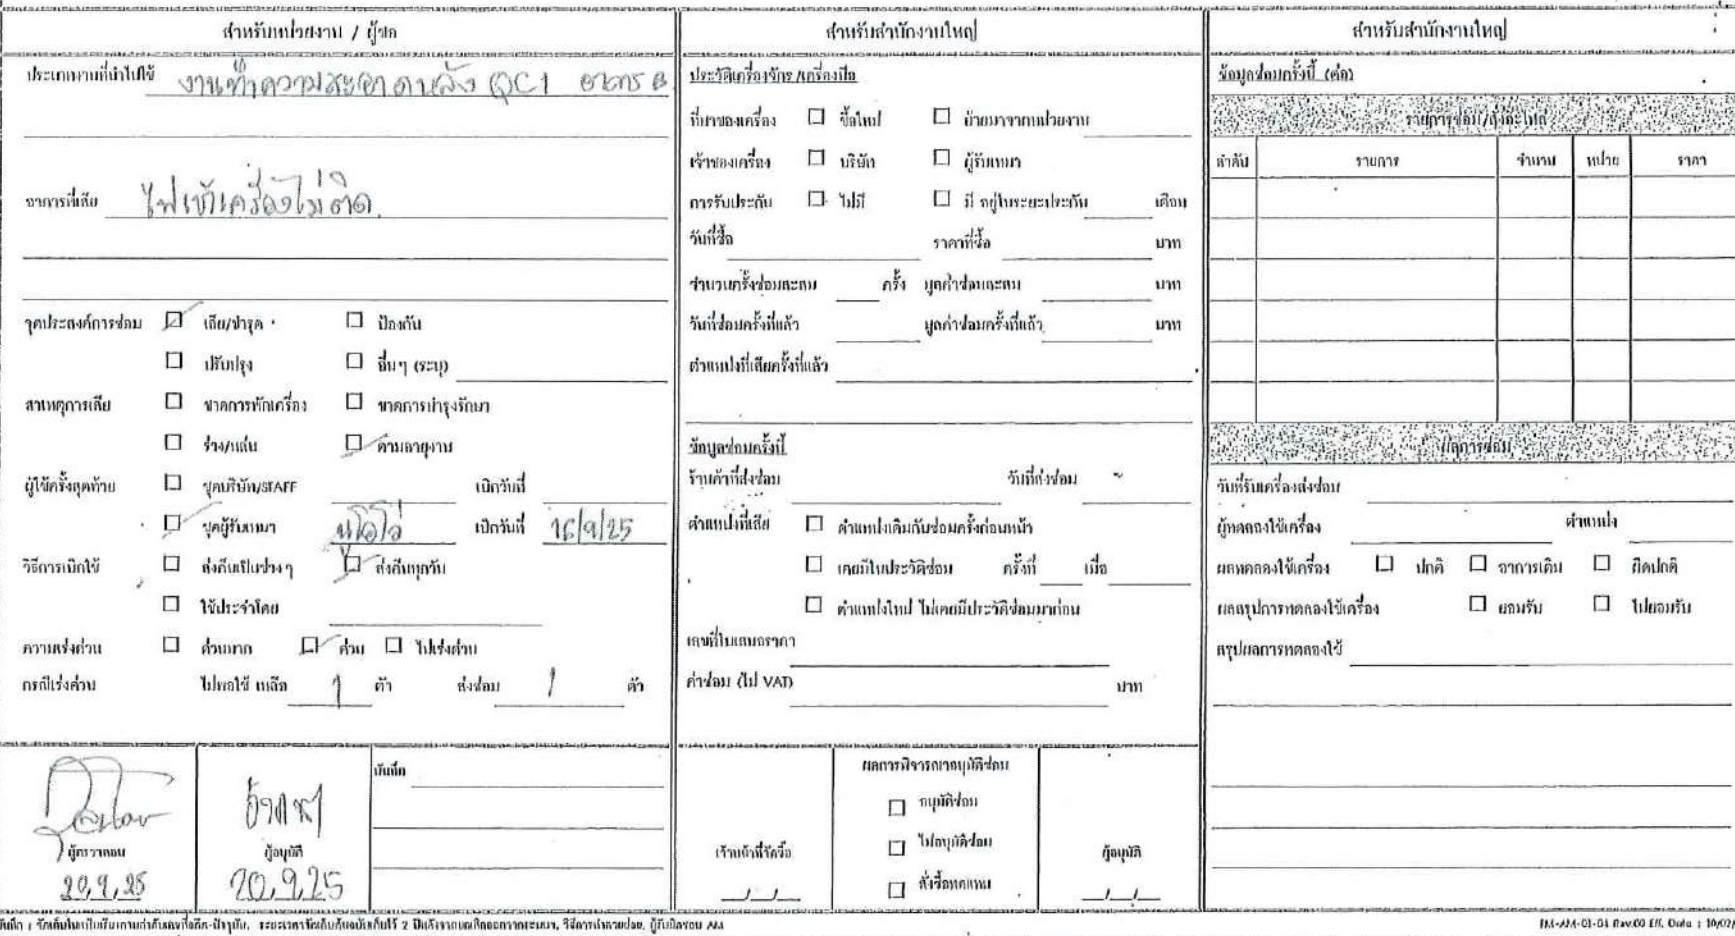 สำหรับหน่วยงาน / ผู้ขอ
ประเภทงานที่นำไปใช้ งานทำความสะอาดหลัง QC1 อาคาร B
อาการที่เสีย ไฟเข้าเครื่องไม่ติด
จุดประสงค์การซ่อม เสีย/ชำรุด ป้องกัน
ปรับปรุง อื่นๆ (ระบุ)
สาเหตุการเสีย ขาดการพักเครื่อง ขาดการบำรุงรักษา
ร่วง/หล่น ตามอายุงาน
ผู้ใช้ครั้งสุดท้าย ชุดบริษัท/STAFF เบิกวันที่
ชุดผู้รับเหมา เบิกวันที่ 16/9/25
วิธีการเบิกใช้ ส่งคืนเป็นช่วงๆ ส่งคืนทุกวัน
ใช้ประจำโดย
ความเร่งด่วน ด่วนมาก ด่วน ไม่เร่งด่วน
กรณีเร่งด่วน ไม่พอใช้ เหลือ 1 ตัว ส่งซ่อม 1 ตัว
ผู้ตรวจสอบ
20,9,25
ผู้อนุมัติ
20.9.25
บันทึก
สำหรับสำนักงานใหญ่
ประวัติเครื่องจักร/เครื่องมือ
ที่มาของเครื่อง ซื้อใหม่ ย้ายมาจากหน่วยงาน
เจ้าของเครื่อง บริษัท ผู้รับเหมา
การรับประกัน ไม่มี มี อยู่ในระยะประกัน เดือน
วันที่ซื้อ ราคาที่ซื้อ บาท
จำนวนครั้งซ่อมสะสม ครั้ง มูลค่าซ่อมสะสม บาท
วันที่ซ่อมครั้งที่แล้ว มูลค่าซ่อมครั้งที่แล้ว บาท
ตำแหน่งที่เสียครั้งที่แล้ว
ข้อมูลซ่อมครั้งนี้
ร้านค้าที่ส่งซ่อม วันที่ส่งซ่อม
ตำแหน่งที่เสีย ตำแหน่งเดิมกับซ่อมครั้งก่อนหน้า
เคยมีในประวัติซ่อม ครั้งที่ เมื่อ
ตำแหน่งใหม่ ไม่เคยมีประวัติซ่อมมาก่อน
เลขที่ใบเสนอราคา
ค่าซ่อม (ไม่ VAT) บาท
เจ้าหน้าที่จัดซื้อ
ผลการพิจารณาอนุมัติซ่อม
อนุมัติซ่อม
ไม่อนุมัติซ่อม
สั่งซื้อทดแทน
ผู้อนุมัติ
สำหรับสำนักงานใหญ่
ข้อมูลซ่อมครั้งนี้ (ต่อ)
รายการซ่อม/อะไหล่
ลำดับ รายการ จำนวน หน่วย ราคา
ผลการซ่อม
วันที่รับเครื่องส่งซ่อม
ผู้ทดลองใช้เครื่อง ตำแหน่ง
ผลทดลองใช้เครื่อง ปกติ อาการเดิม ผิดปกติ
ผลสรุปการทดลองใช้เครื่อง ยอมรับ ไม่ยอมรับ
สรุปผลการทดลองใช้